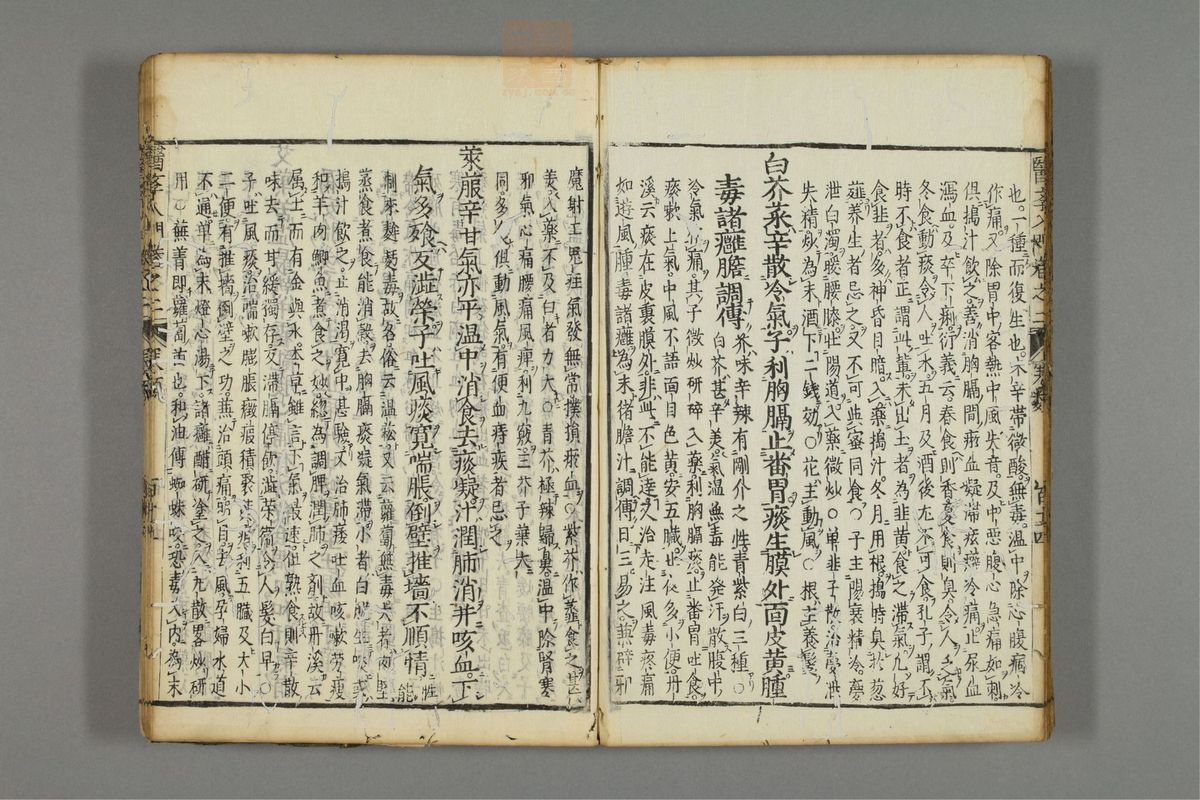 也一種而復生也味辛帶微酸無毒溫中除心腹痼冷
作痛又除胃中客熱中風失音及中惡腹心急痛如刺
俱搗汁飲之善消胸膈間瘀血凝滯痃癖冷痛止尿血
瀉血及卒下痢衍義云春食則香夏食則臭令人乏氣
冬食動痰令人吐水五月及酒後尤不可食孔子謂不
時不食者正謂此輩未出土者為韭黃食之滯氣凡好
食韭者多神昏目暗入藥搗汁冬月用根搗時臭於葱
薤養生者忌之又不可共蜜同食○子主陽衰精冷夢
泄白濁暖腰膝壯陽道入藥微炒○單韭子散治虛泄
失精炒為末酒下二錢効○花主動風○根主養髮
白芥菜辛散冷氣子利胸膈止番胃痰生膜外面皮黃腫
毒諸癰膽調傅 芥味辛辣有剛介之性青紫白三種○
白芥甚辛美氣溫無毒能發汗散腹中
冷氣作痛其子微炒研碎入藥利胸膈痰止番胃吐食
痰嗽上氣中風不語面目色黃安五臟止夜多小便丹
溪云痰在皮裏膜外非此不能達又治走注風毒疼痛
如遊風腫毒諸癰為末猪膽汁調傅日三易之兼辟邪
魔射工鬼疰氣發無常撲損瘀血○紫芥作虀食之甚
美入藥不及白者力大○青芥極辣歸鼻溫中除腎寒
邪氣心痛腰痛風痺利九竅三芥子葉大
同多食俱動風氣有便血痔疾者忌之
萊菔辛甘氣亦平溫中消食去痰凝汁潤肺消并咳血下
氣多飡反澁榮子吐風痰寬喘脹倒壁推墻不順情 性能
制來麰麪毒故名俗云溫菘又云蘿蔔無毒大者肉堅
蒸食煮食能消穀去胸膈痰凝氣滯小者白脆生啖或
搗汁飲之止消渴寬中甚驗又治肺痿吐血咳嗽勞瘦
和羊肉鯽魚煮食之妙總為調脾潤肺之劑故丹溪云
屬土而有金與水本草雖言下氣最速但熟食則辛散
味去而甘緩獨存反滯膈停飲澁榮衛令人髮白早○
子吐風痰治喘嗽膨脹癥瘕積聚黃疸利五臟及大小
二便有推墻倒壁之功兼治頭痛明目去風孕婦水道
不通單為末燈心湯下諸癰醋研塗之入丸散畧炒研
用○蕪菁即蘿蔔苗也和油傅蜘蛛咬恐毒入內為末